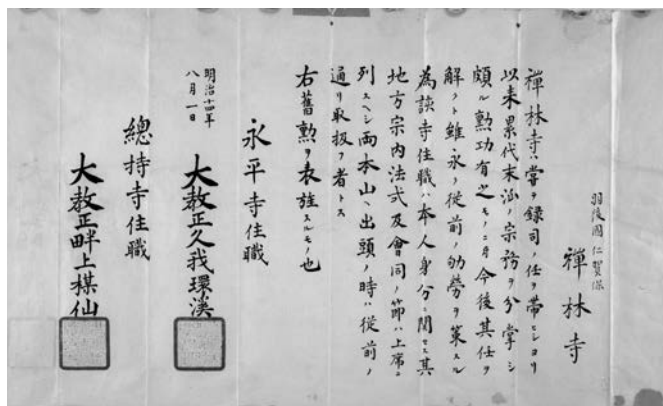 羽後國 仁賀保
禅林寺
禅林寺ハ嘗テ録司ノ任ヲ帯ヒシヨリ
以来累代末派ノ宗務ヲ分掌シ
頗ル勲功有之モノニ付今後其任ヲ
解クト雖永ク従前ノ劬勞ヲ策スル
為該寺住職ハ本人身分ニ関セス其
地方宗内法式及會同ノ節ハ上席ニ
列スヘシ両本山ヘ出頭ノ時ハ従前ノ
通リ取扱フ者トス
右舊勲ヲ表旌スルモノ也
永平寺住職
明治十四年
八月一日
大教正久我環渓
總持寺住職
大教正畔上楳仙